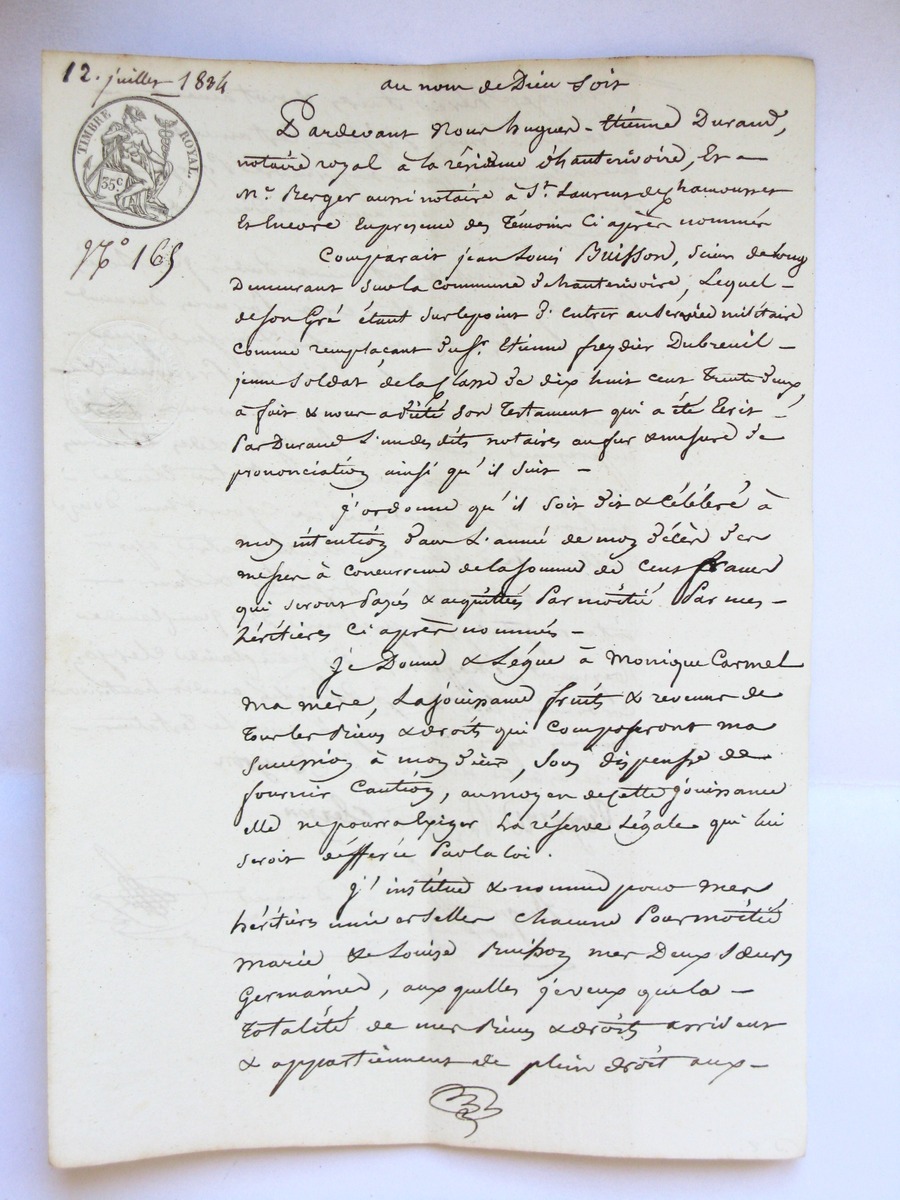 12. juillet 1834
au nom de Dieu soit
TIMBRE ROYAL.
35c.
N° 165
Pardevant Nous hugues-Etienne Durand,
notaire royal à la résidence d'hauterivoire, Et a
Me. Berger aussi notaire à St. Laurent de Chamousset
Et Encore En presence des Témoins Ci après nommés
Comparait jean Louis Buisson, Scieur de Long
Demeurant sur la commune d'hauterivoire, Lequel -
de son Gré étant sur le point d'entrer au service militaire
Comme remplaçant du Sr. Etienne freydier Dubreuil -
jeune soldat de la Classe de dix huit cent Trente deux,
à fait & nous a dicté son Testament qui a été Ecrit -
Par Durand L'un des dits notaires au fur & mesure de
prononciation ainsi qu'il suit -
J'ordonne qu'il soit dit & Célébré à
mon intention dans L'année de mon décès des
messes à concurrence de la somme de Cent francs
qui seront Payés & acquittés Par moitié Par mes -
héritières Ci après nommés -
Je Donne & Lègue à Monique Carmel
ma mère, La jouissance fruits & revenus de
Tous les Biens & droits qui Composeront ma
Succession à mon décès, sous dispense de
fournir Caution, au moyen de Cette jouissance
elle ne pourra Exiger La réserve Légale qui lui
seroit défferée Par la loi.
J'institue & nomme pour mes
héritières universelles chacune Pour moitié
Marie & Louise Buisson mes Deux Sœurs
Germaines, aux quelles je veux que la -
Totalité de mes Biens & droits arrivent
& appartiennent de plein droit aux -